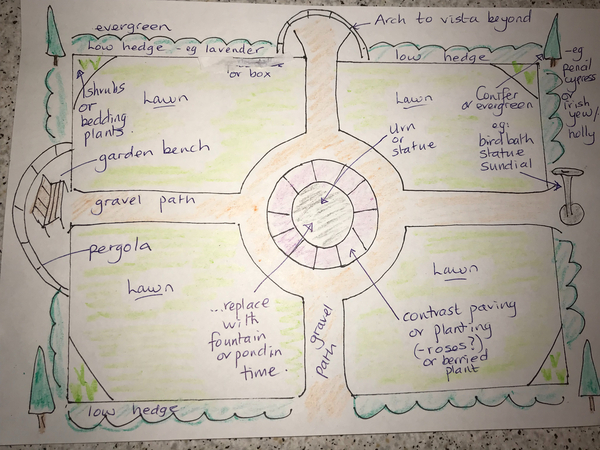 evergreen
low hedge - eg lavender
or box
Arch to vista beyond
low hedge
-eg
pencil
cypress
or
irish
yew/
holly
shrubs
or
bedding
plants.
Lawn
Lawn
Conifer
or evergreen
eg:
bird bath
statue
sundial
urn
or
statue
garden bench
gravel path
pergola
Lawn
Lawn
...replace
with
fountain
or pond in
time.
gravel
path
contrast paving
or planting
(-roses?)
or berried
plant
low hedge